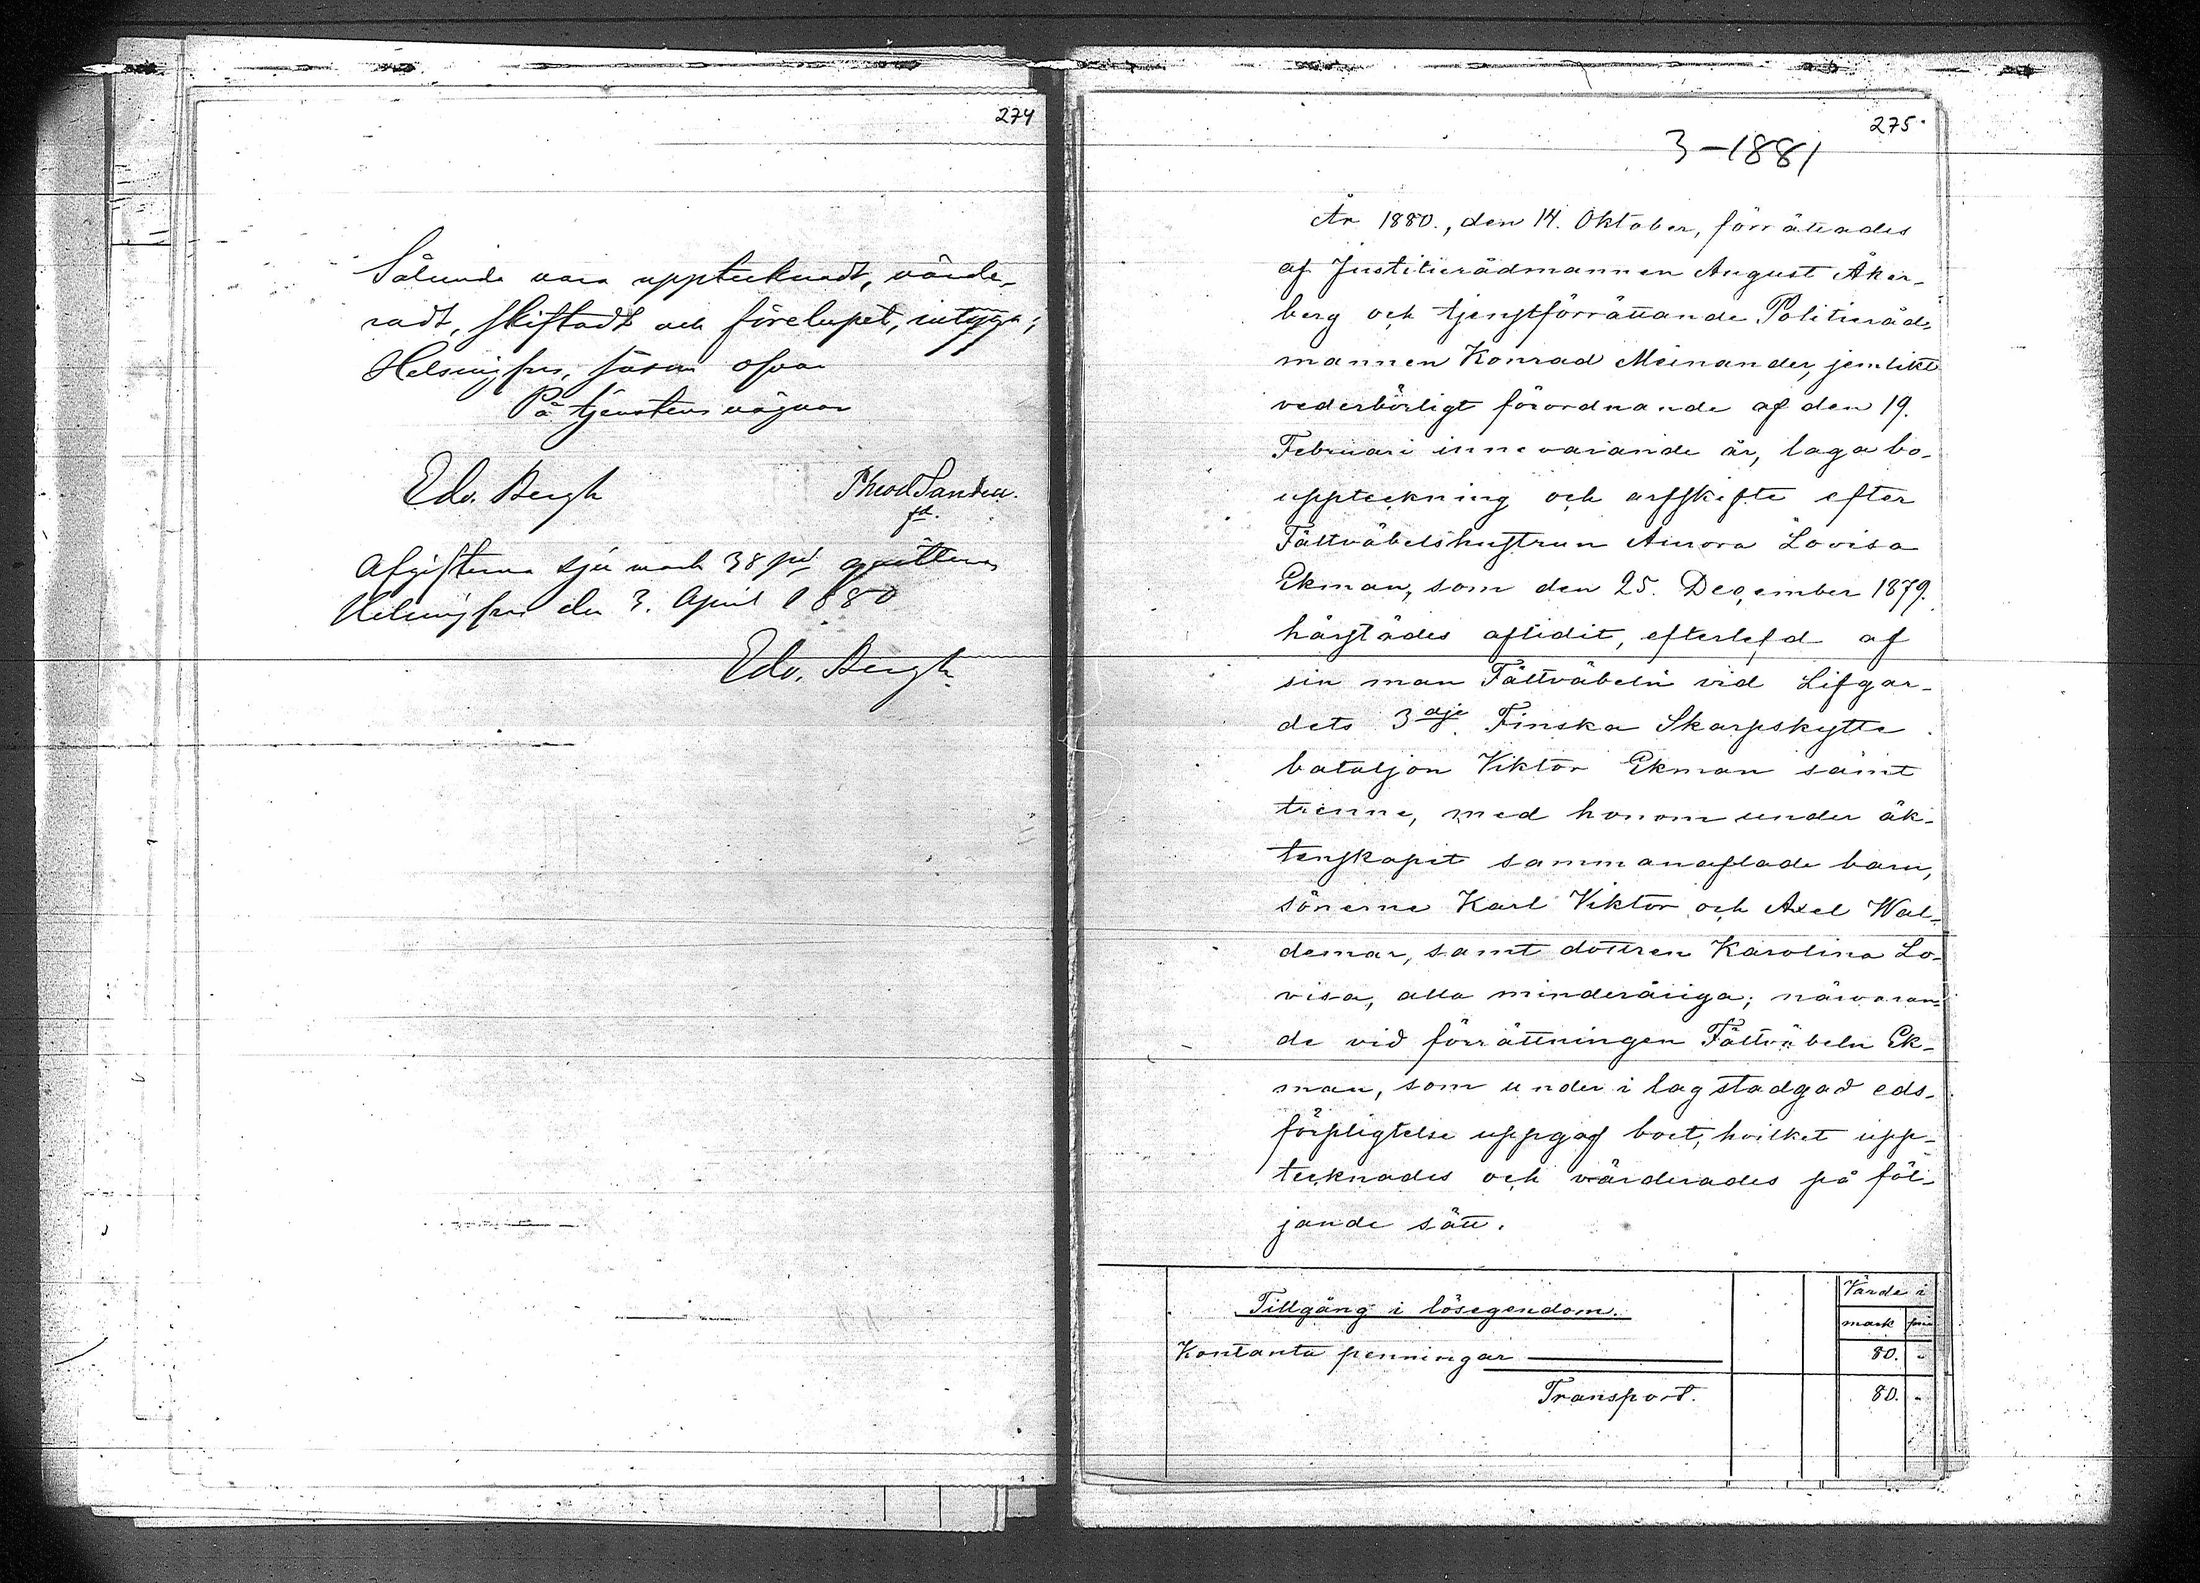 274
Sålunda vara upptecknadt, värde-
radt, skiftadt och förelupet, intyga;
Helsingfors, såsom ofvan
På tjenstens vägnar
Edv. Bergh
Afgifterna sju mark 38 pi qvitteras
Helsingfors den 3. April 1880
Edv. Bergh
275.
3-1881
År 1880., den 14. Oktober, förrättades
af Justitierådmannen August Åker-
berg och tjenstförrättande Politieråd-
mannen Konrad Meinander, jemlikt
vederbörligt förordnande af den 19.
Februari innevarande år, laga bo-
uppteckning och arfskifte efter
Fältväbelshustrun Aurora Lovisa
Ekman, som den 25. December 1879.
härstädes aflidit, efterlefd af
sin man Fältväbeln vid Lifgar-
dets 3dje Finska Skarpskytte
bataljon Viktor Ekman samt
trenne, med honom under äk-
tenskapet sammanaflade barn,
sönerne Karl Viktor och Axel Wal-
demar, samt dottren Karolina Lo-
visa, alla minderåriga; närvaran-
de vid förrättningen Fältväbeln Ek-
man, som under i lag stadgad eds-
förpligtelse uppgaf boet, hvilket upp-
tecknades och värderades på föl-
jande sätt.
Värde i
Tillgång i lösegendom.
mark
Kontanta penningar 80. -
Transport. 80. -